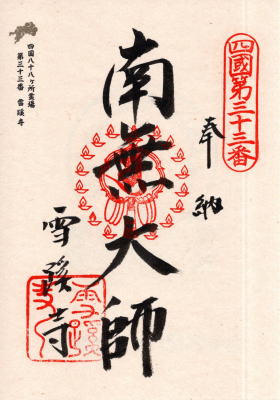 四國第三十三番
奉納
南無大師
雪蹊寺
四国八十八ヶ所霊場
第三十三番 雪蹊寺